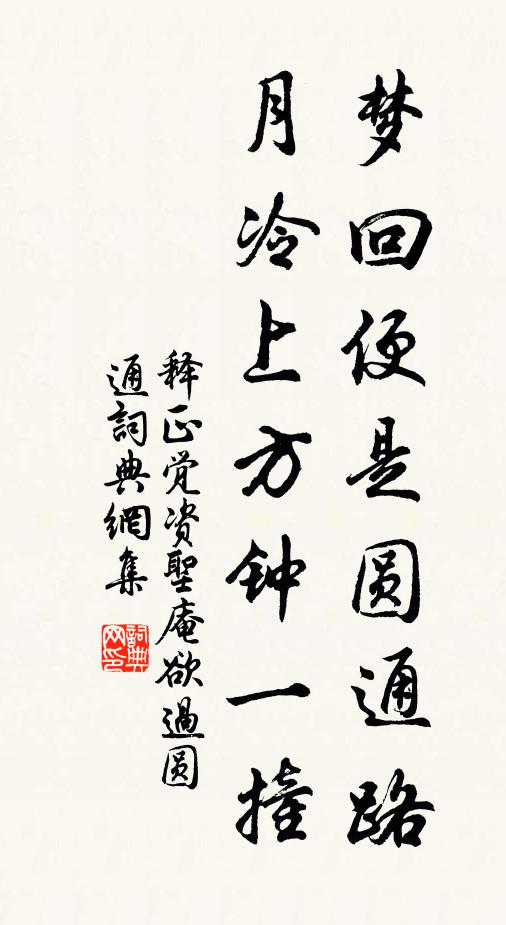 梦回便是圆通路
月冷上方钟一撞
释正觉资聖庵欲過圆
通詞典網集
詞典网印